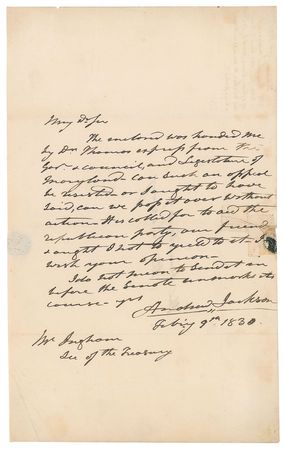 My Dr Sir
The enclosed was handed me
by Dr. Thomas express from the
Govr. & council, and Legislature of
Maryland can such an appeal
be resisted or I ought to have
said, can we pass it over without
action. It is called for to aid the
republican party, our friend
ought I not to yield to it I
wish your opinion.
I do not mean to send it in
before the Senate remark its
course - yrs
Andrew Jackson
Febry 9th 1830.
Mr Ingham
Sec of the Treasury